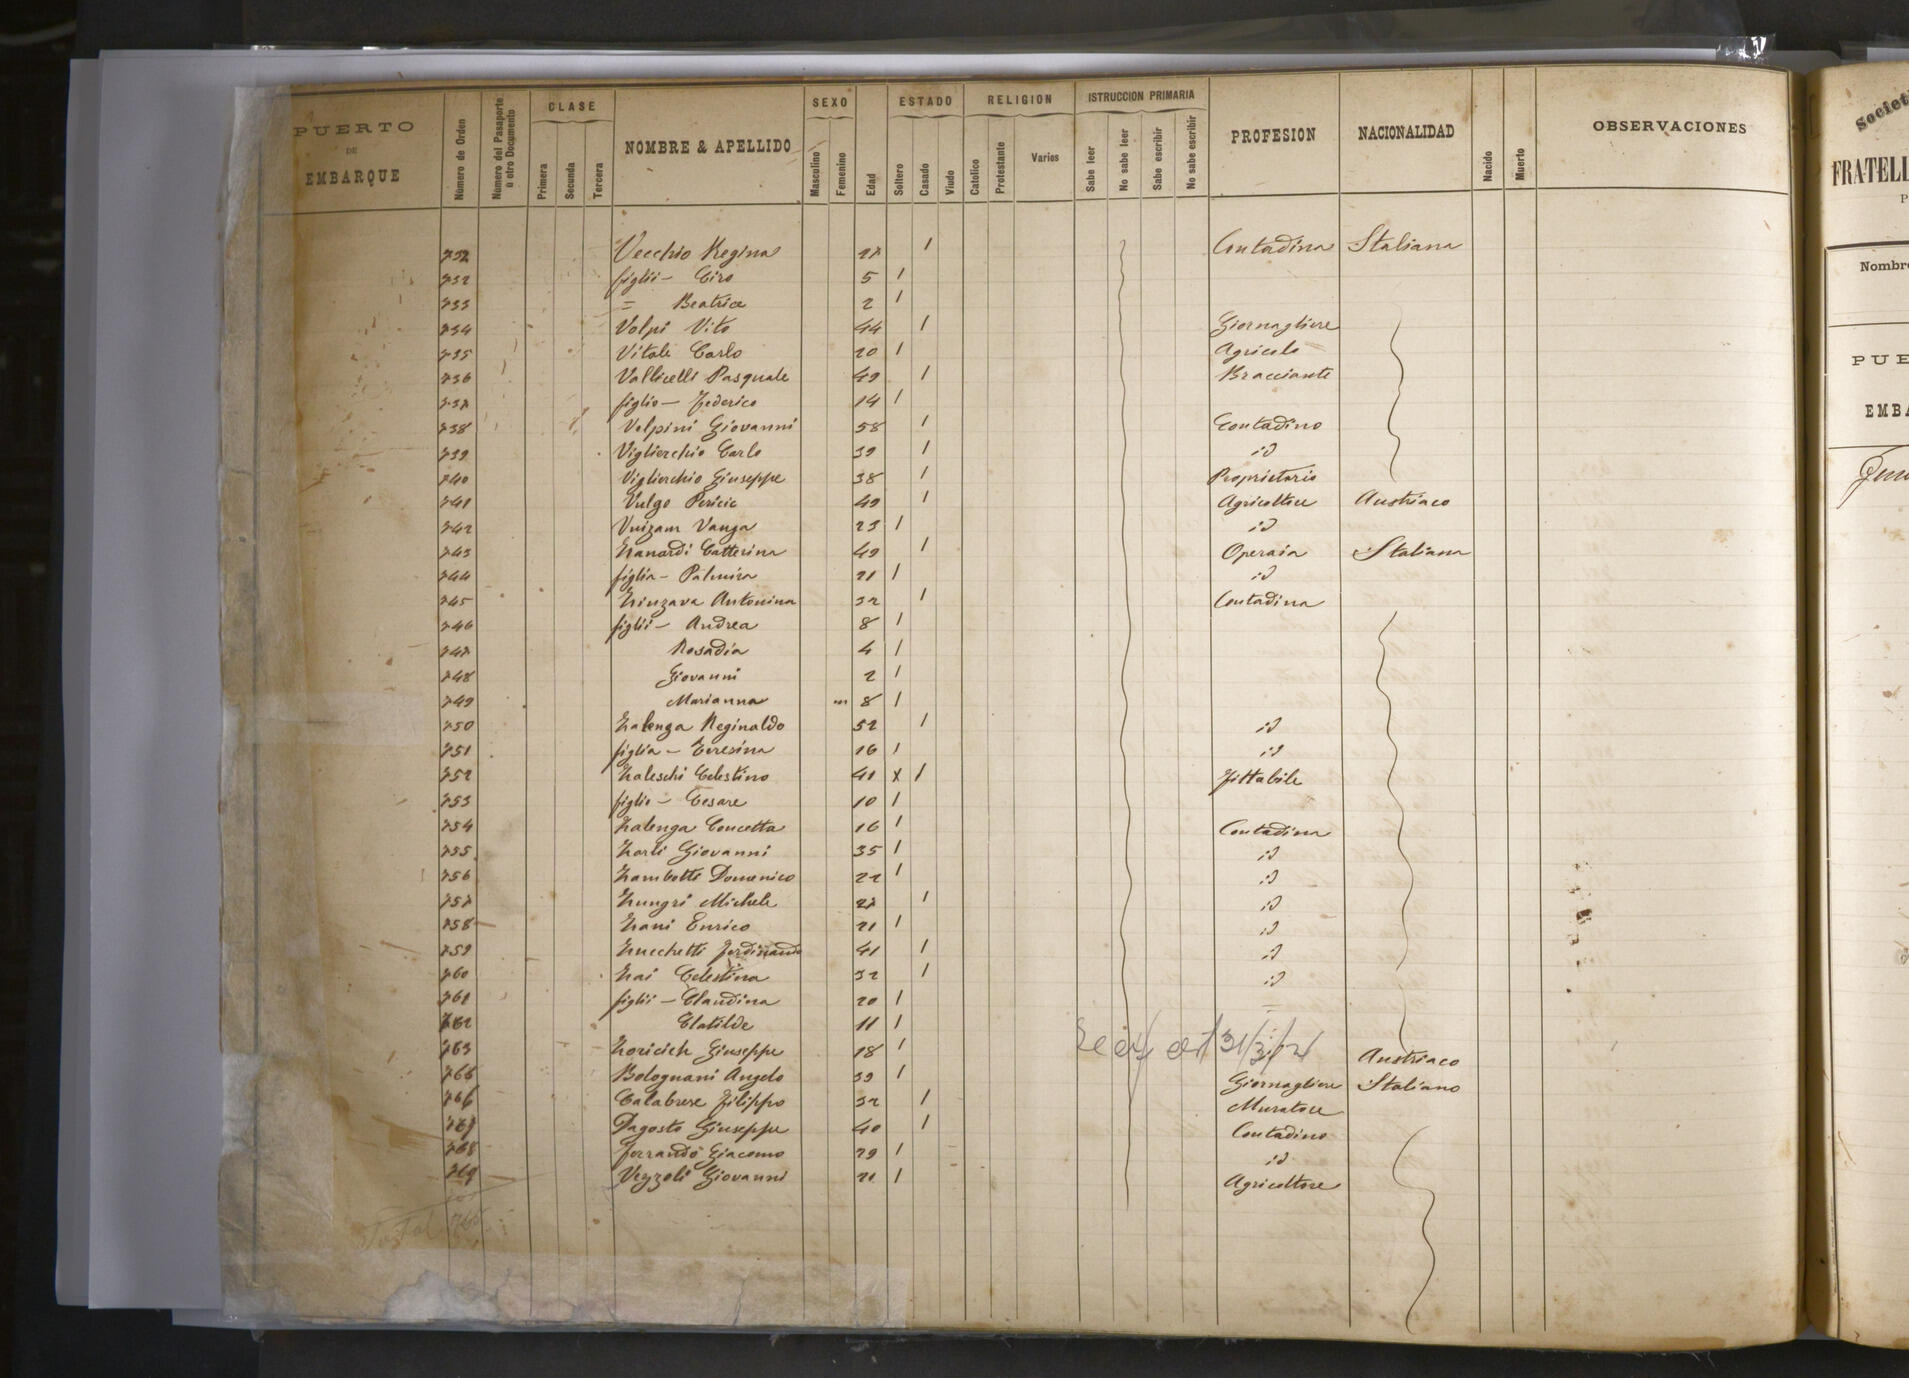 PUERTO DE EMBARQUE Número de Orden Número del Pasaporte ú otro Documento CLASE Primera Secunda Tercera NOMBRE & APELLIDO SEXO Masculino Femenino Edad ESTADO Soltero Casado Viudo RELIGION Catolico Protestante Varios ISTRUCCION PRIMARIA Sabe leer No sabe leer Sabe escribir No sabe escribir PROFESION NACIONALIDAD Nacido Muerto OBSERVACIONES
Vecchio Regina / Contadina Italiana
732 figlii - Ciro 5 /
733 = Beatrice 2 /
734 Volpi Vito 44 / Giornagliere
735 Vitale Carlo 20 / Agricolo
736 Vallicelli Pasquale 49 / Bracciante
737 figlio - Federico 14 /
738 Volpini Giovanni 58 / Contadino
739 Viglierchio Carlo 39 / id
740 Viglierchio Giuseppe 38 / Proprietario
741 Vulgo Pericic 49 / Agricoltore Austriaco
742 Vuizam Vanga 23 / id
743 Zanardi Catterina 49 / Operaia Italiana
744 figlia - Palmira 21 / id
745 Zinzava Antonina 32 / Contadina
746 figlii - Andrea 8 /
747 Rosadia 4 /
748 Giovanni 2 /
749 Marianna 8 /
750 Zalenga Reginaldo 52 / id
751 figlia - Teresina 16 / id
752 Zaleschi Celestino 41 x / Fittabile
753 figlio - Cesare 10 /
754 Zalenga Concetta 16 / Contadina
755 Zorli Giovanni 35 / id
756 Zambotti Domenico 22 / id
757 Zungri Michele 27 / id
758 Zani Enrico 21 / id
759 Zucchetti Ferdinando 41 / id
760 Zai Celestina 32 / id
761 figlii - Claudina 20 /
762 Clatilde 11 /
763 Zoricich Giuseppe 18 / Austriaco
766 Bolognani Angelo 39 / Giornagliere Italiano
766 Calabrese Filippo 32 / Muratore
767 Dagosto Giuseppe 40 / Contadino
768 Ferrando Giacomo 29 / id
769 Vezzoli Giovanni 21 / Agricoltore
Total
FRATELL
Nombre
PUE
EMBA